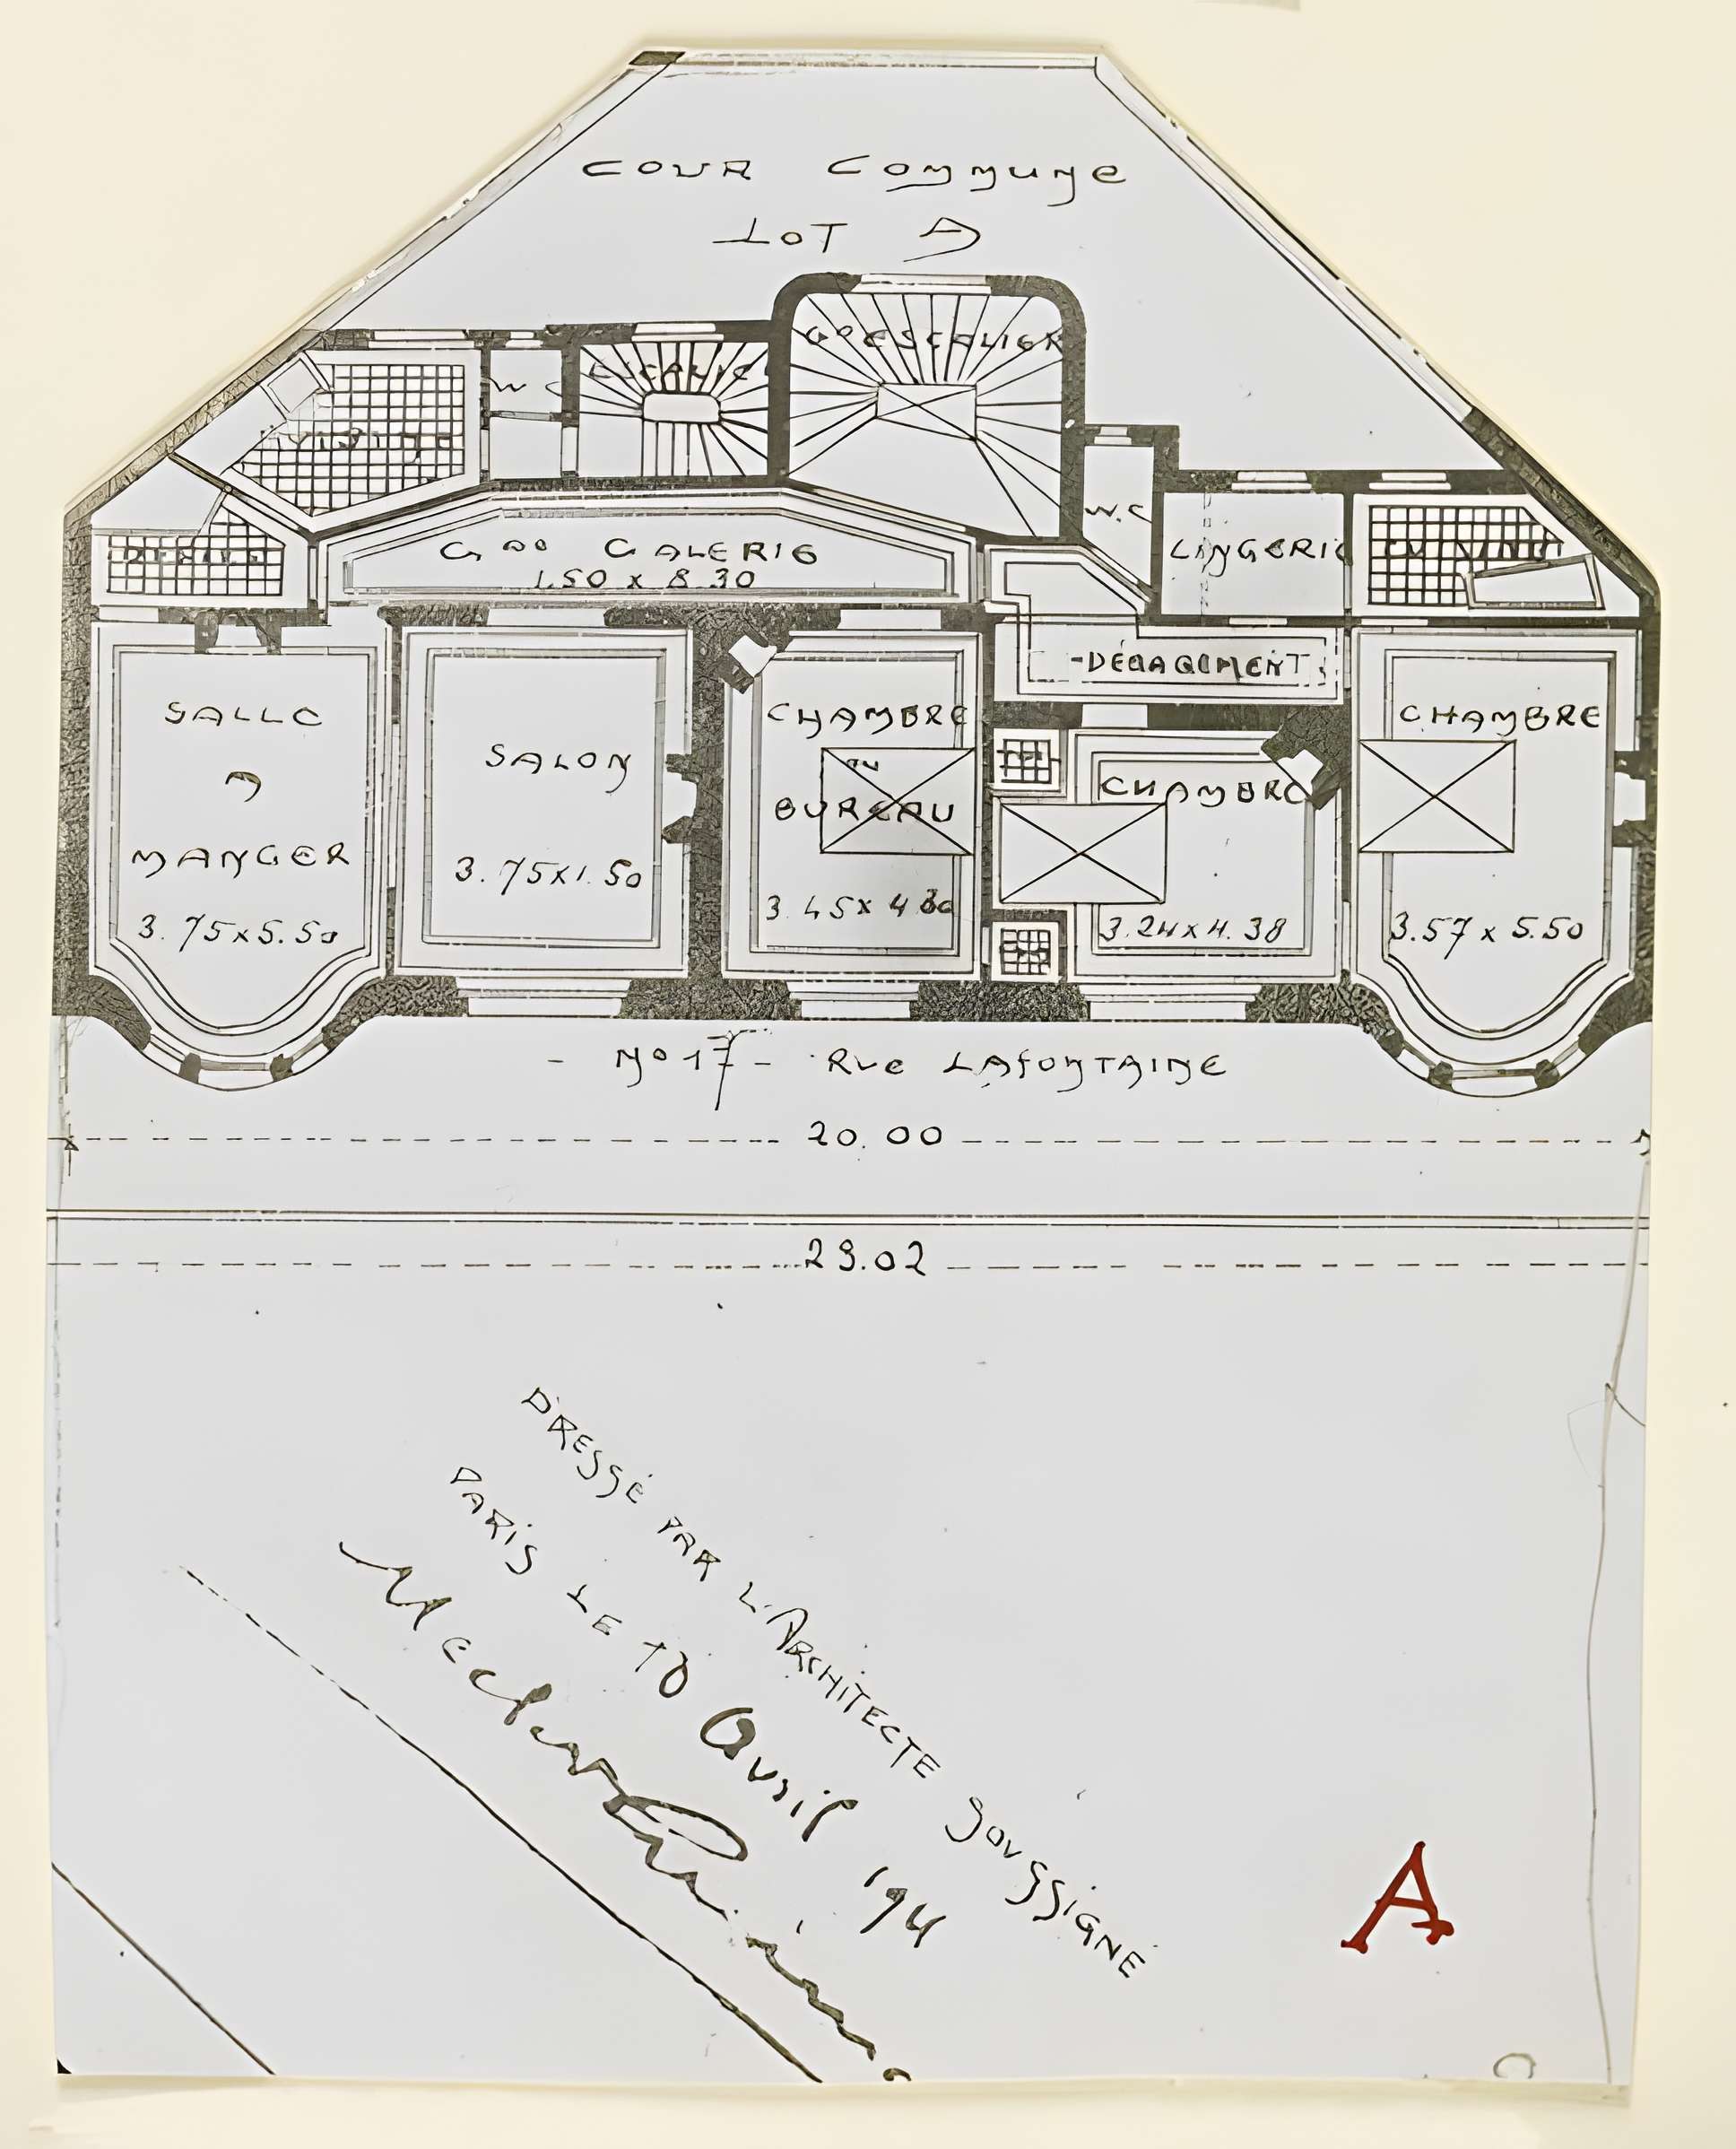 COUR COMMUNE
LOT A
GD ESCALIER
ESCALIER
W C
CUISINE
W.C
LINGERIE
GDE GALERIE
1.50 x 8.30
-DÉGAGEMENT-
SALLE
A
MANGER
3.75x5.50
SALON
3.75x1.50
CHAMBRE
OU
BUREAU
3.45x4.30
CHAMBRE
3.24x4.38
CHAMBRE
3.57 x 5.50
- No 17 - RUE LAFONTAINE
20.00
29.02
DRESSÉ PAR L'ARCHITECTE SOUSSIGNÉ
PARIS LE 10 Avril
A